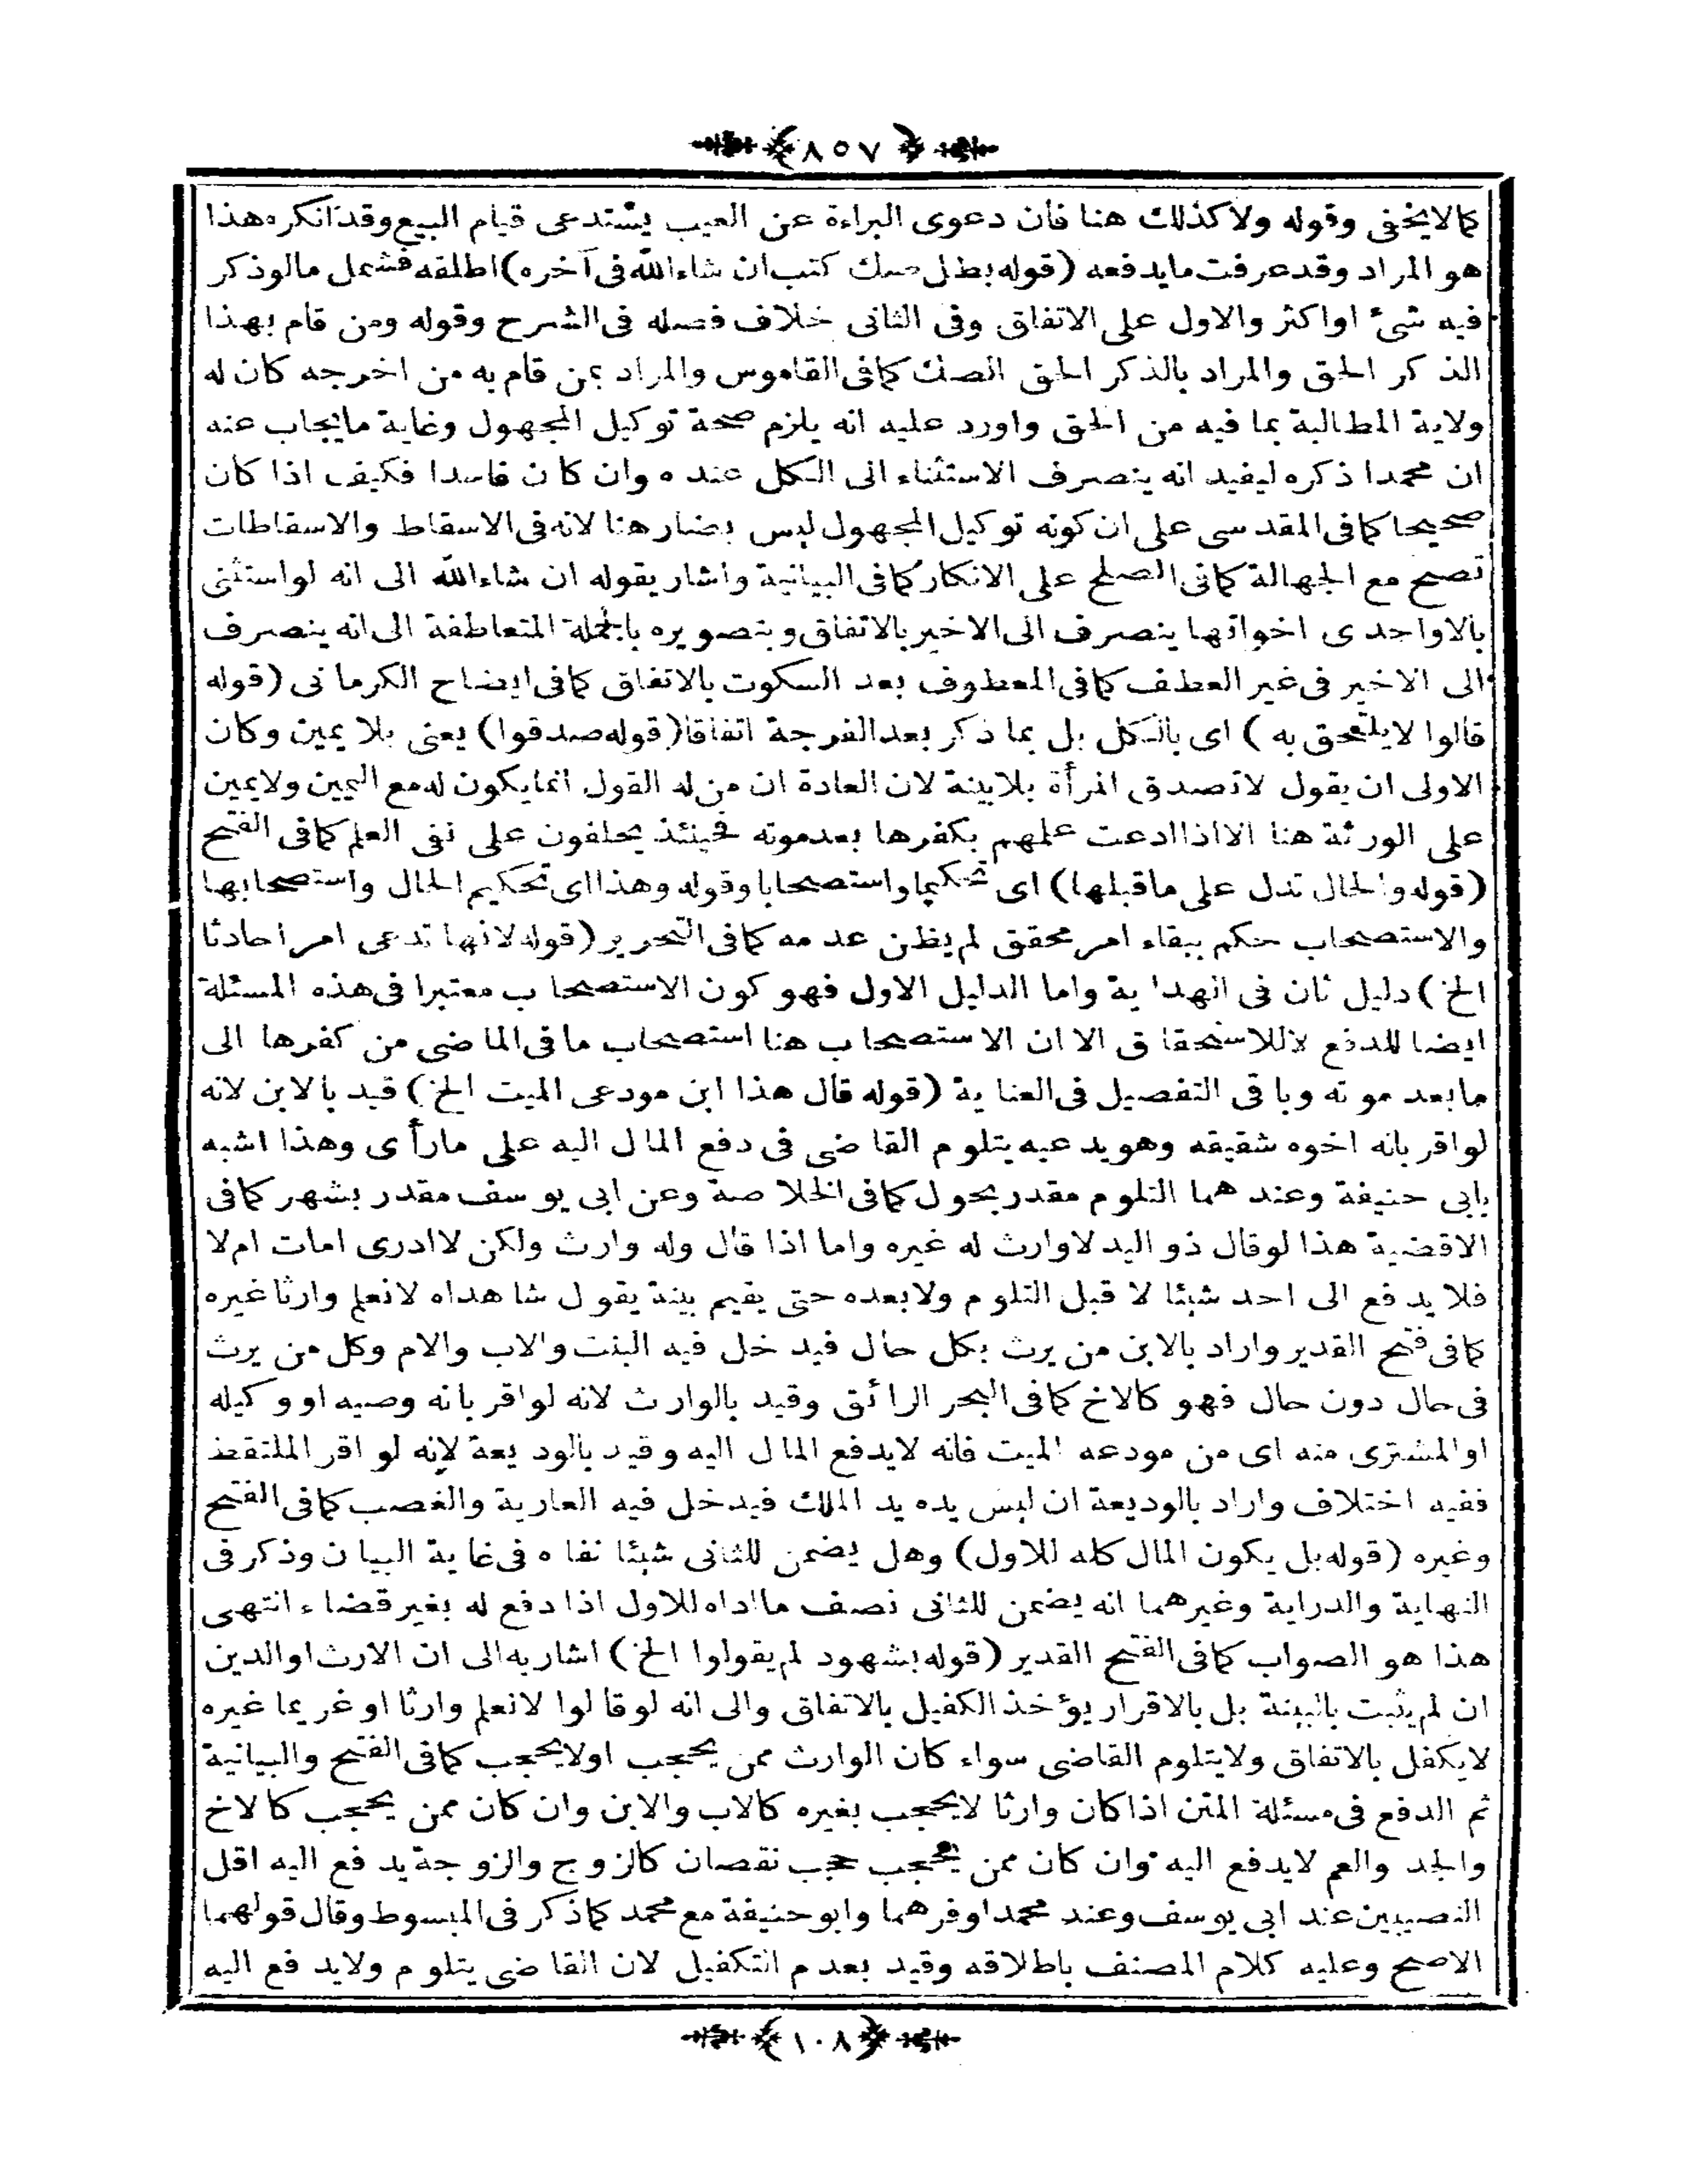 ٨٥٧
كما لا يخفى وقوله ولا كذلك هنا فان دعوى البراءة عن العيب يستدعى قيام البيع وقد انكره هذا
هو المراد وقد عرفت ما يدفعه (قوله بطل صك كتب ان شاءالله فى آخره) اطلقه فشمل ما لو ذكر
فيه شئ او اكثر والاول على الاتفاق وفى الثانى خلاف فصله فى الشرح وقوله ومن قام بهذا
الذكر الحق والمراد بالذكر الحق الصك كما فى القاموس والمراد بمن قام به من اخرجه كان له
ولاية المطالبة بما فيه من الحق واورد عليه انه يلزم صحة توكيل المجهول وغاية ما يجاب عنه
ان محمدا ذكره ليفيد انه ينصرف الاستثناء الى الكل عنده وان كان فاسدا فكيف اذا كان
صحيحا كما فى المقدسى على ان كونه توكيل المجهول ليس بضار هنا لانه فى الاسقاط والاسقاطات
تصح مع الجهالة كما فى الصلح على الانكار كما فى البيانية واشار بقوله ان شاءالله الى انه لو استثنى
بالا واحدى اخواتها ينصرف الى الاخير بالاتفاق وبتصويره بالجملة المتعاطفة الى انه ينصرف
الى الاخير فى غير العطف كما فى المعطوف بعد السكوت بالاتفاق كما فى ايضاح الكرمانى (قوله
قالوا لا يلتحق به) اى بالكل بل بما ذكر بعد الفرجة اتفاقا (قوله صدقوا) يعنى بلا يمين وكان
الاولى ان يقول لا تصدق المرأة بلا بينة لان العادة ان من له القول انما يكون له مع اليمين ولا يمين
على الورثة هنا الا اذا ادعت علمهم بكفرها بعد موته فحينئذ يحلفون على نفى العلم كما فى الفتح
(قوله والحال تدل على ما قبلها) اى تحكيما واستصحابا وقوله وهذا اى تحكيم الحال واستصحابها
والاستصحاب حكم ببقاء امر محقق لم يظن عدمه كما فى التحرير (قوله لانها تدعى امرا حادثا
الخ) دليل ثان فى الهداية واما الدليل الاول فهو كون الاستصحاب معتبرا فى هذه المسئلة
ايضا للدفع لا للاستحقاق الا ان الاستصحاب هنا استصحاب ما فى الماضى من كفرها الى
ما بعد موته وباقى التفصيل فى العناية (قوله قال هذا ابن مودعى الميت الخ) قيد بالابن لانه
لو اقر بانه اخوه شقيقه وهو يدعيه يتلوم القاضى فى دفع المال اليه على ما رأى وهذا اشبه
بابى حنيفة وعندهما التلوم مقدر بحول كما فى الخلاصة وعن ابى يوسف مقدر بشهر كما فى
الاقضية هذا لو قال ذو اليد لا وارث له غيره واما اذا قال وله وارث ولكن لا ادرى امات ام لا
فلا يدفع الى احد شيئا لا قبل التلوم ولا بعده حتى يقيم بينة يقول شاهداه لا نعلم وارثا غيره
كما فى فتح القدير واراد بالابن من يرث بكل حال فيدخل فيه البنت والاب والام وكل من يرث
فى حال دون حال فهو كالاخ كما فى البحر الرائق وقيد بالوارث لانه لو اقر بانه وصيه او وكيله
او المشترى منه اى من مودعه الميت فانه لا يدفع المال اليه وقيد بالوديعة لانه لو اقر الملتقط
ففيه اختلاف واراد بالوديعة ان ليس يده يد الملك فيدخل فيه العارية والغصب كما فى الفتح
وغيره (قوله بل يكون المال كله للاول) وهل يضمن للثانى شيئا نفاه فى غاية البيان وذكر فى
النهاية والدراية وغيرهما انه يضمن للثانى نصف ما اداه للاول اذا دفع له بغير قضاء انتهى
هذا هو الصواب كما فى الفتح القدير (قوله بشهود لم يقولوا الخ) اشار به الى ان الارث او الدين
ان لم يثبت بالبينة بل بالاقرار يؤخذ الكفيل بالاتفاق والى انه لو قالوا لا نعلم وارثا او غريما غيره
لا يكفل بالاتفاق ولا يتلوم القاضى سواء كان الوارث ممن يحجب او لا يحجب كما فى الفتح والبيانية
ثم الدفع فى مسئلة المتن اذا كان وارثا لا يحجب بغيره كالاب والابن وان كان ممن يحجب كالاخ
والجد والعم لا يدفع اليه وان كان ممن يحجب حجب نقصان كالزوج والزوجة يدفع اليه اقل
النصيبين عند ابى يوسف وعند محمد اوفرهما وابو حنيفة مع محمد كما ذكر فى المبسوط وقال قولهما
الاصح وعليه كلام المصنف باطلاقه وقيد بعدم التكفيل لان القاضى يتلوم ولا يدفع اليه
١٠٨